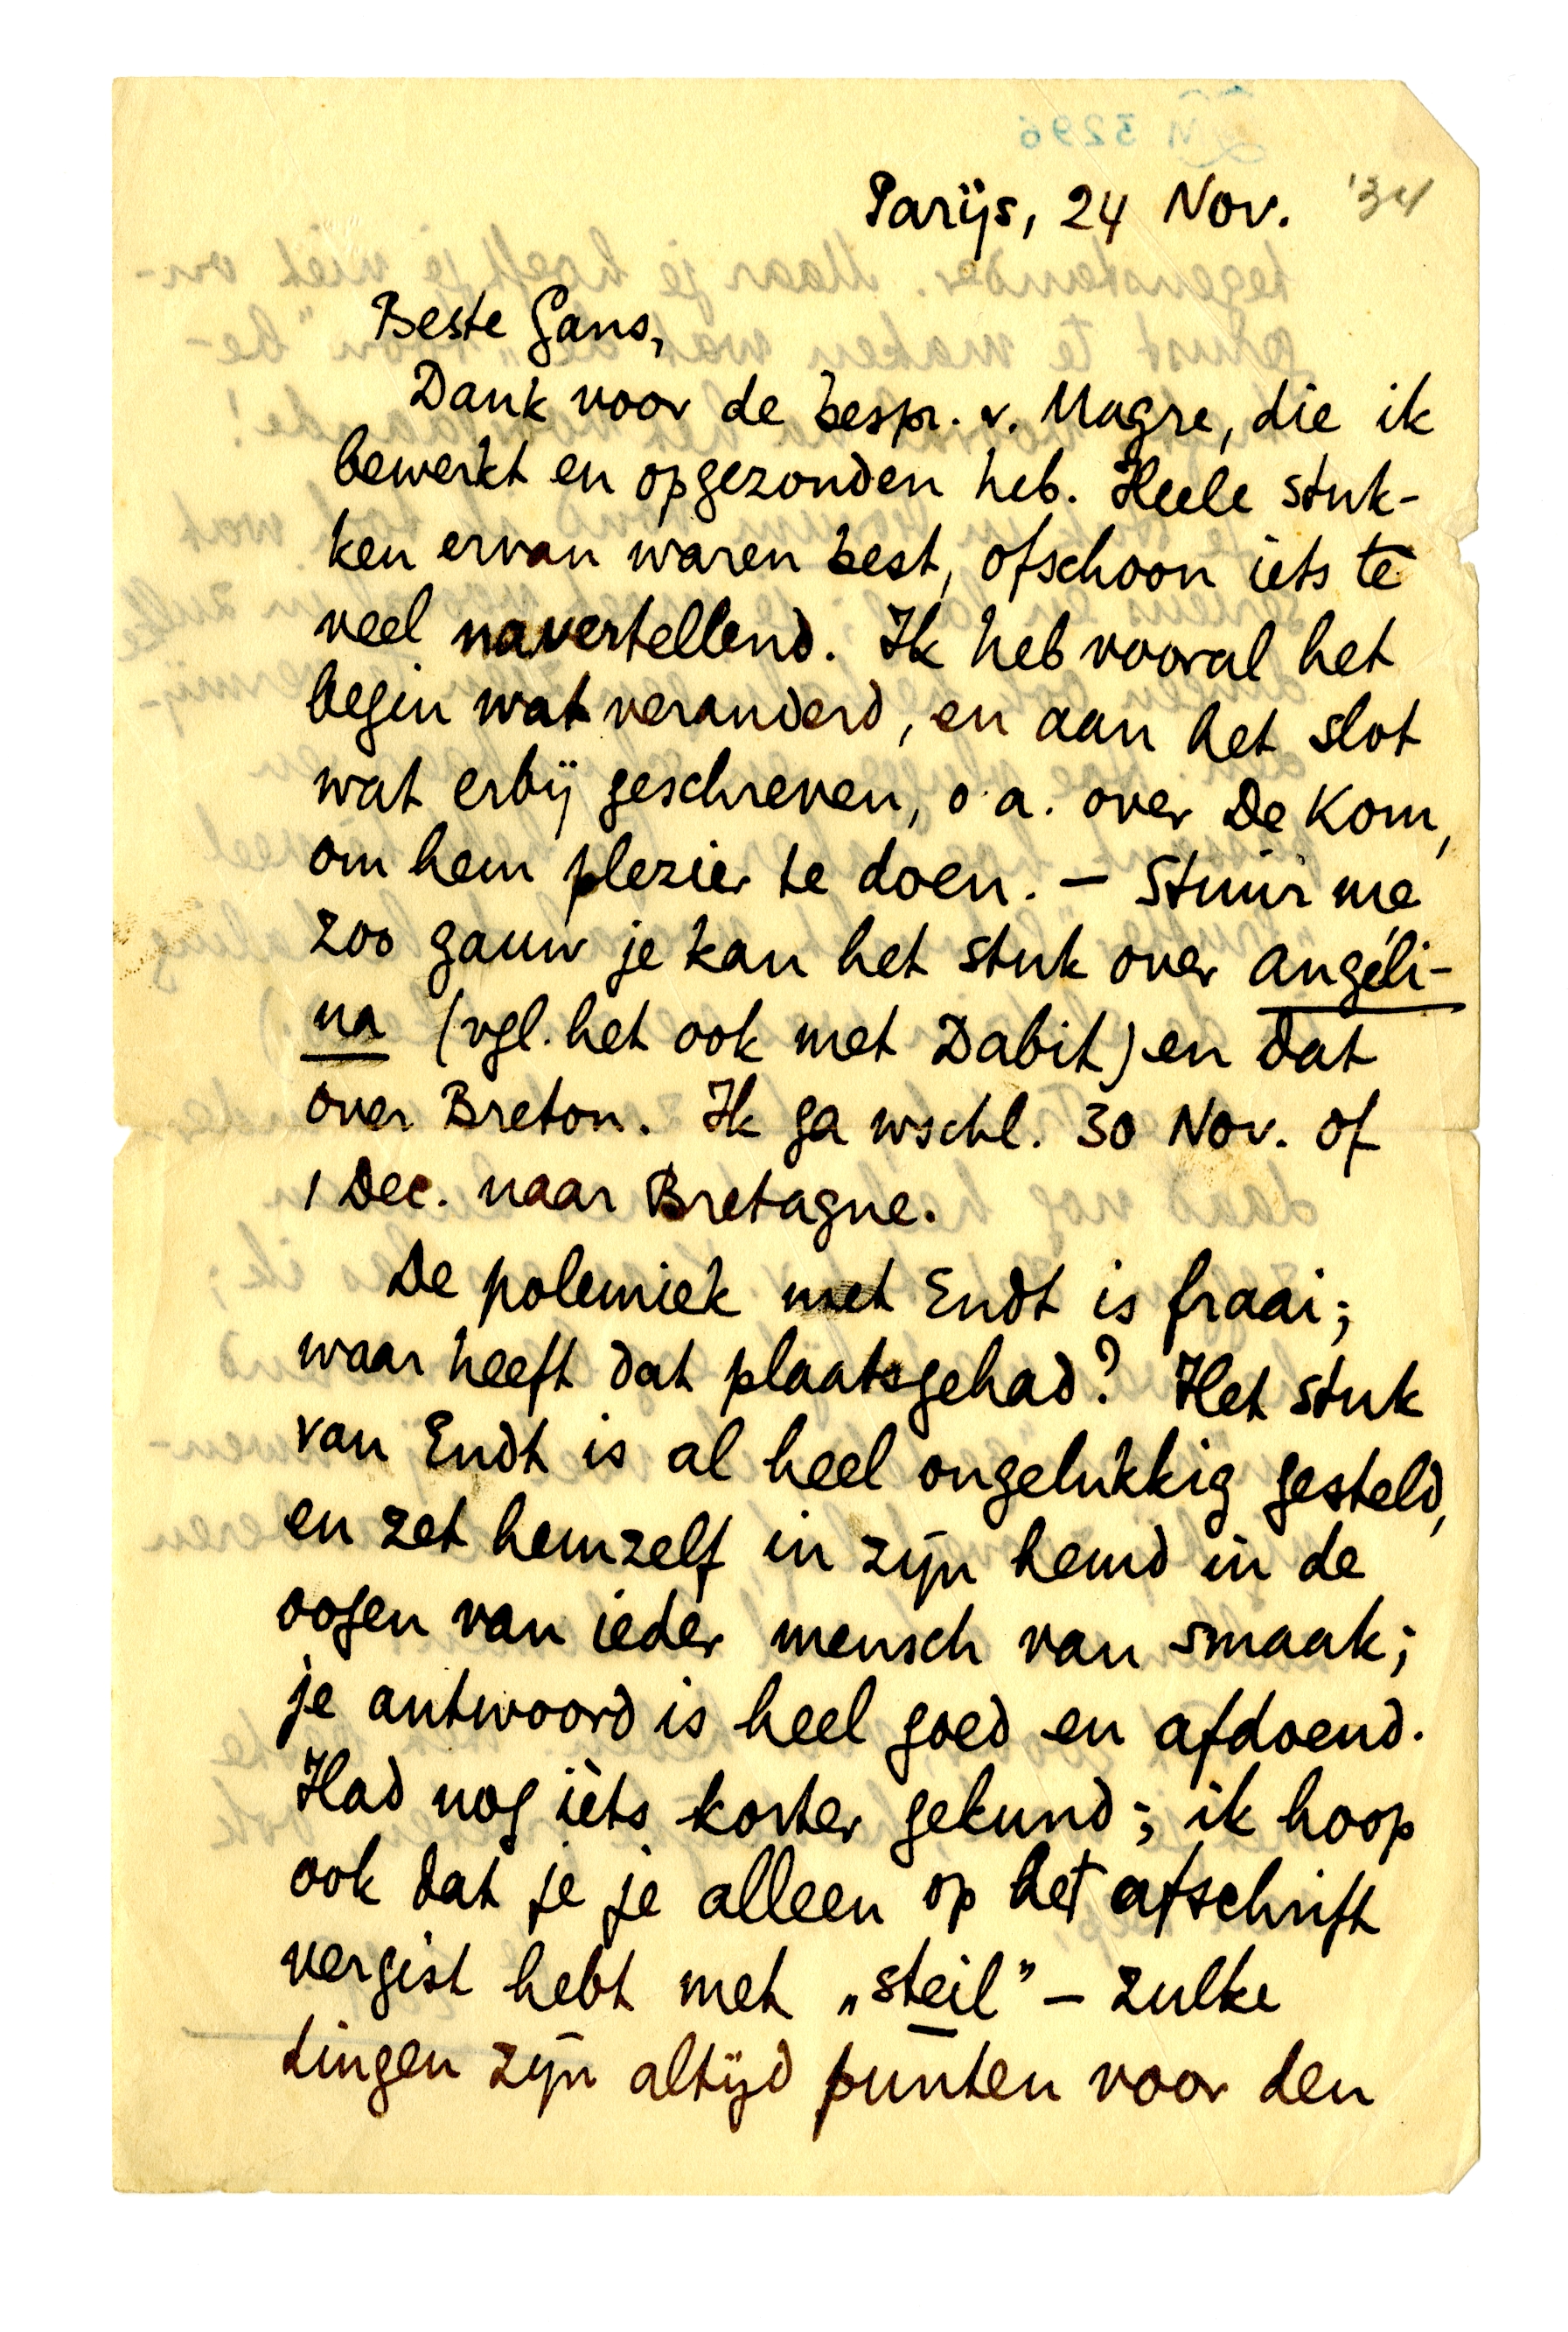 Parijs, 24 Nov. '34
Beste Gans,
Dank voor de bespr. v. Magre, die ik
bewerkt en opgezonden heb. Heele stuk-
ken ervan waren best, ofschoon iets te
veel navertellend. Ik heb vooral het
begin wat veranderd, en aan het slot
wat erbij geschreven, o.a. over De Kom,
om hem plezier te doen. — Stuur me
zoo gauw je kan het stuk over Angéli-
na (vgl. het ook met Dabit) en dat
over Breton. Ik ga wschl. 30 Nov. of
1 Dec. naar Bretagne.
De polemiek met Endt is fraai;
waar heeft dat plaatsgehad? Het stuk
van Endt is al heel ongelukkig gesteld,
en zet hemzelf in zijn hemd in de
oogen van ieder mensch van smaak;
je antwoord is heel goed en afdoend.
Had nog ièts korter gekund; ik hoop
ook dat je je alleen op het afschrift
vergist hebt met „steil” — zulke
dingen zijn altijd punten voor den